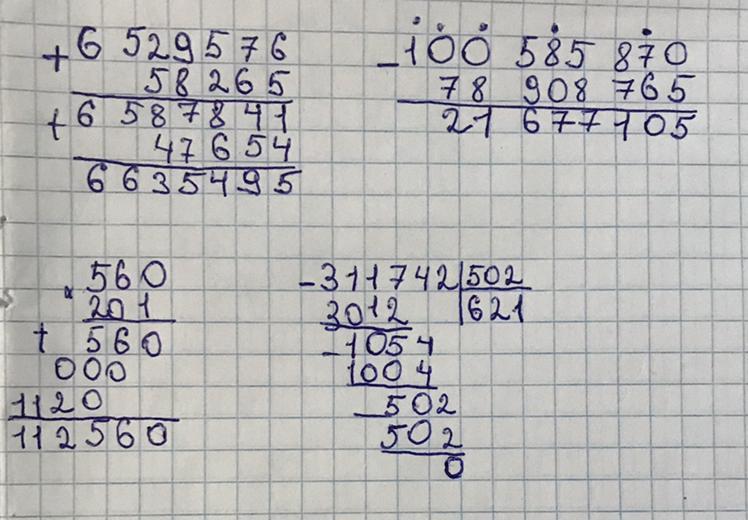 + 6 529576
58265
+ 6 587841
47654
6635495
- 100 585 870
78 908 765
21 677105
× 560
201
+ 560
000
1120
112560
- 311742 502
3012 621
- 1054
1004
- 502
502
0